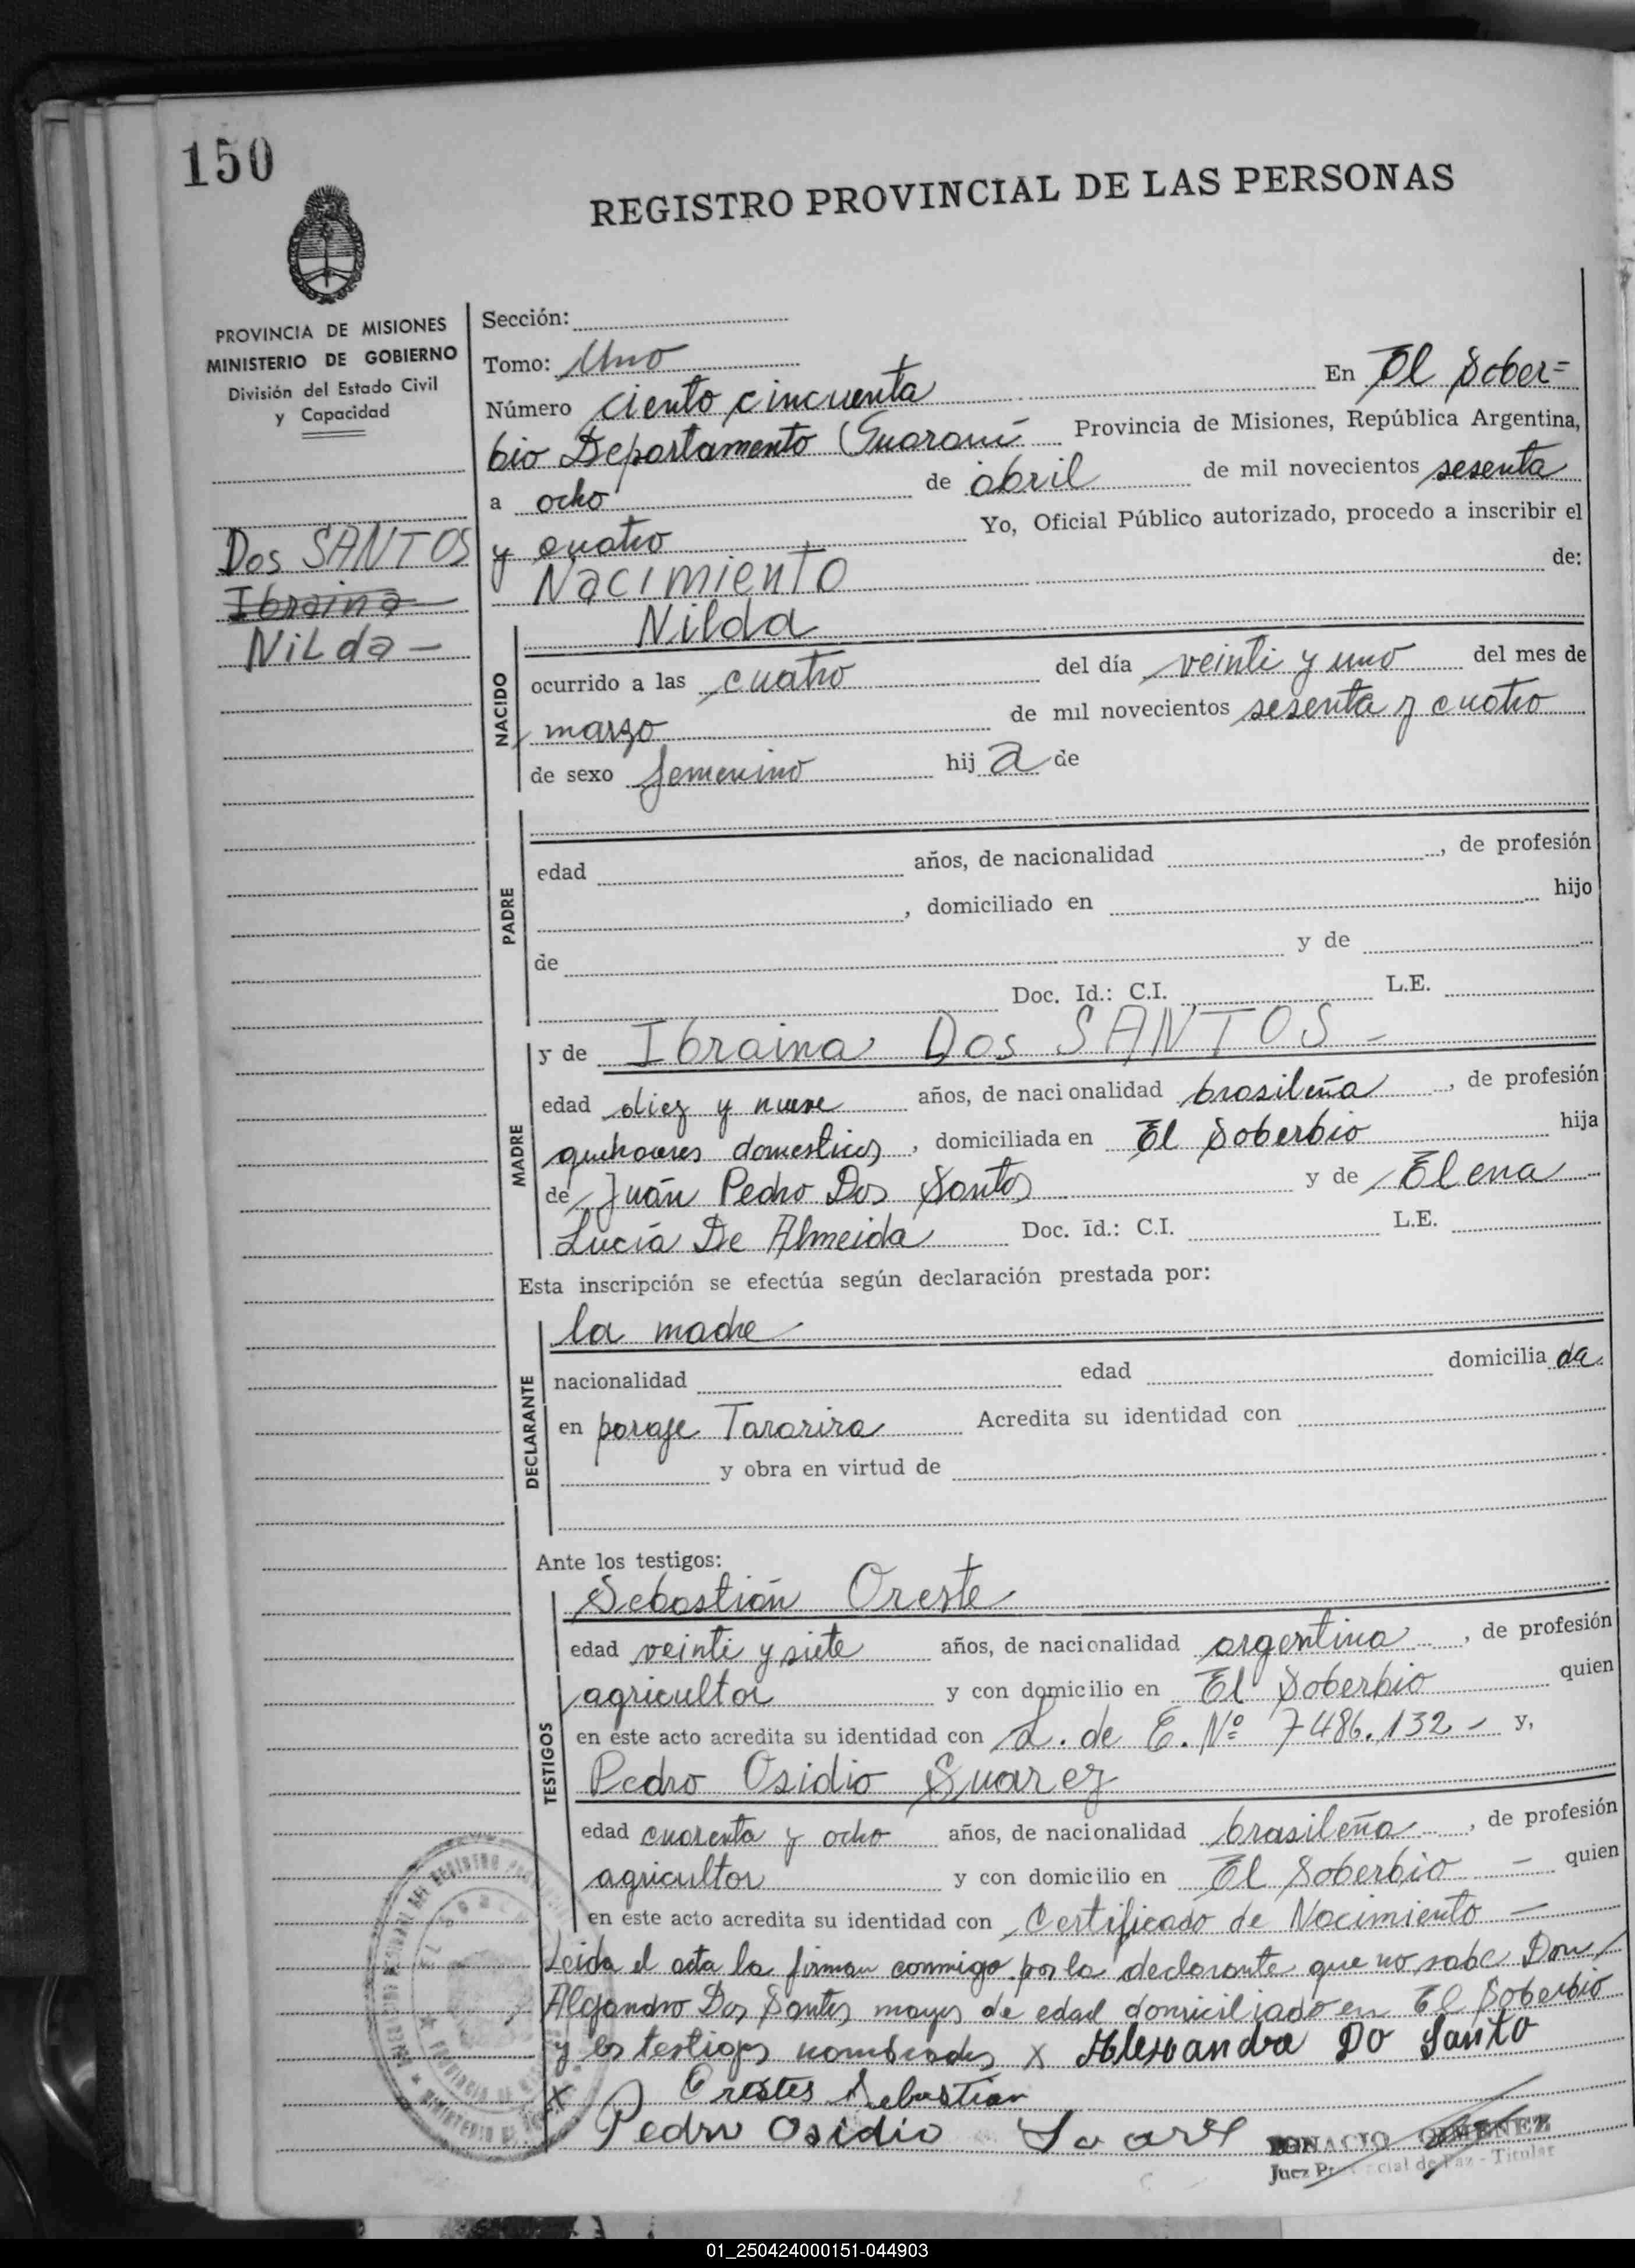 150
REGISTRO PROVINCIAL DE LAS PERSONAS
PROVINCIA DE MISIONES
MINISTERIO DE GOBIERNO
División del Estado Civil
y Capacidad
Dos SANTOS
Ibraina
NiLda -
Sección:
Tomo: Uno
Número ciento cincuenta En El Sober=
bio Departamento Guaraní Provincia de Misiones, República Argentina,
a ocho de abril de mil novecientos sesenta
y cuatro Yo, Oficial Público autorizado, procedo a inscribir el
Nacimiento de:
Nilda
NACIDO
ocurrido a las cuatro del día veinti y uno del mes de
marzo de mil novecientos sesenta y cuatro
de sexo femenino hij a de
PADRE
edad años, de nacionalidad , de profesión
, domiciliado en hijo
de y de
Doc. Id.: C.I. L.E.
MADRE
y de Ibraina Dos SANTOS -
edad diez y nueve años, de nacionalidad brasileña , de profesión
quehaceres domesticos , domiciliada en El Soberbio hija
de Juán Pedro Dos Santos y de Elena
Lucía De Almeida Doc. Id.: C.I. L.E.
Esta inscripción se efectúa según declaración prestada por:
DECLARANTE
la madre
nacionalidad edad domicilia da
en paraje Tararira Acredita su identidad con
y obra en virtud de
Ante los testigos:
TESTIGOS
Sebastián Oreste
edad veinti y siete años, de nacionalidad argentina , de profesión
agricultor y con domicilio en El Soberbio quien
en este acto acredita su identidad con L. de E. Nº 7486.132 - y,
Pedro Osidio Suarez
edad cuarenta y ocho años, de nacionalidad brasileña , de profesión
agricultor y con domicilio en El Soberbio - quien
en este acto acredita su identidad con Certificado de Nacimiento -
Leida el acta la firman conmigo por la declarante que no sabe Don
Alejandro Dos Santos mayor de edad domiciliado en El Soberbio
y los testigos nombrados x Alexandra DO Santo
x Orestes Sebastian
Pedro Osidio
IGNACIO GIMENEZ
Juez Provincial de Paz - Titular
01_250424000151-044903